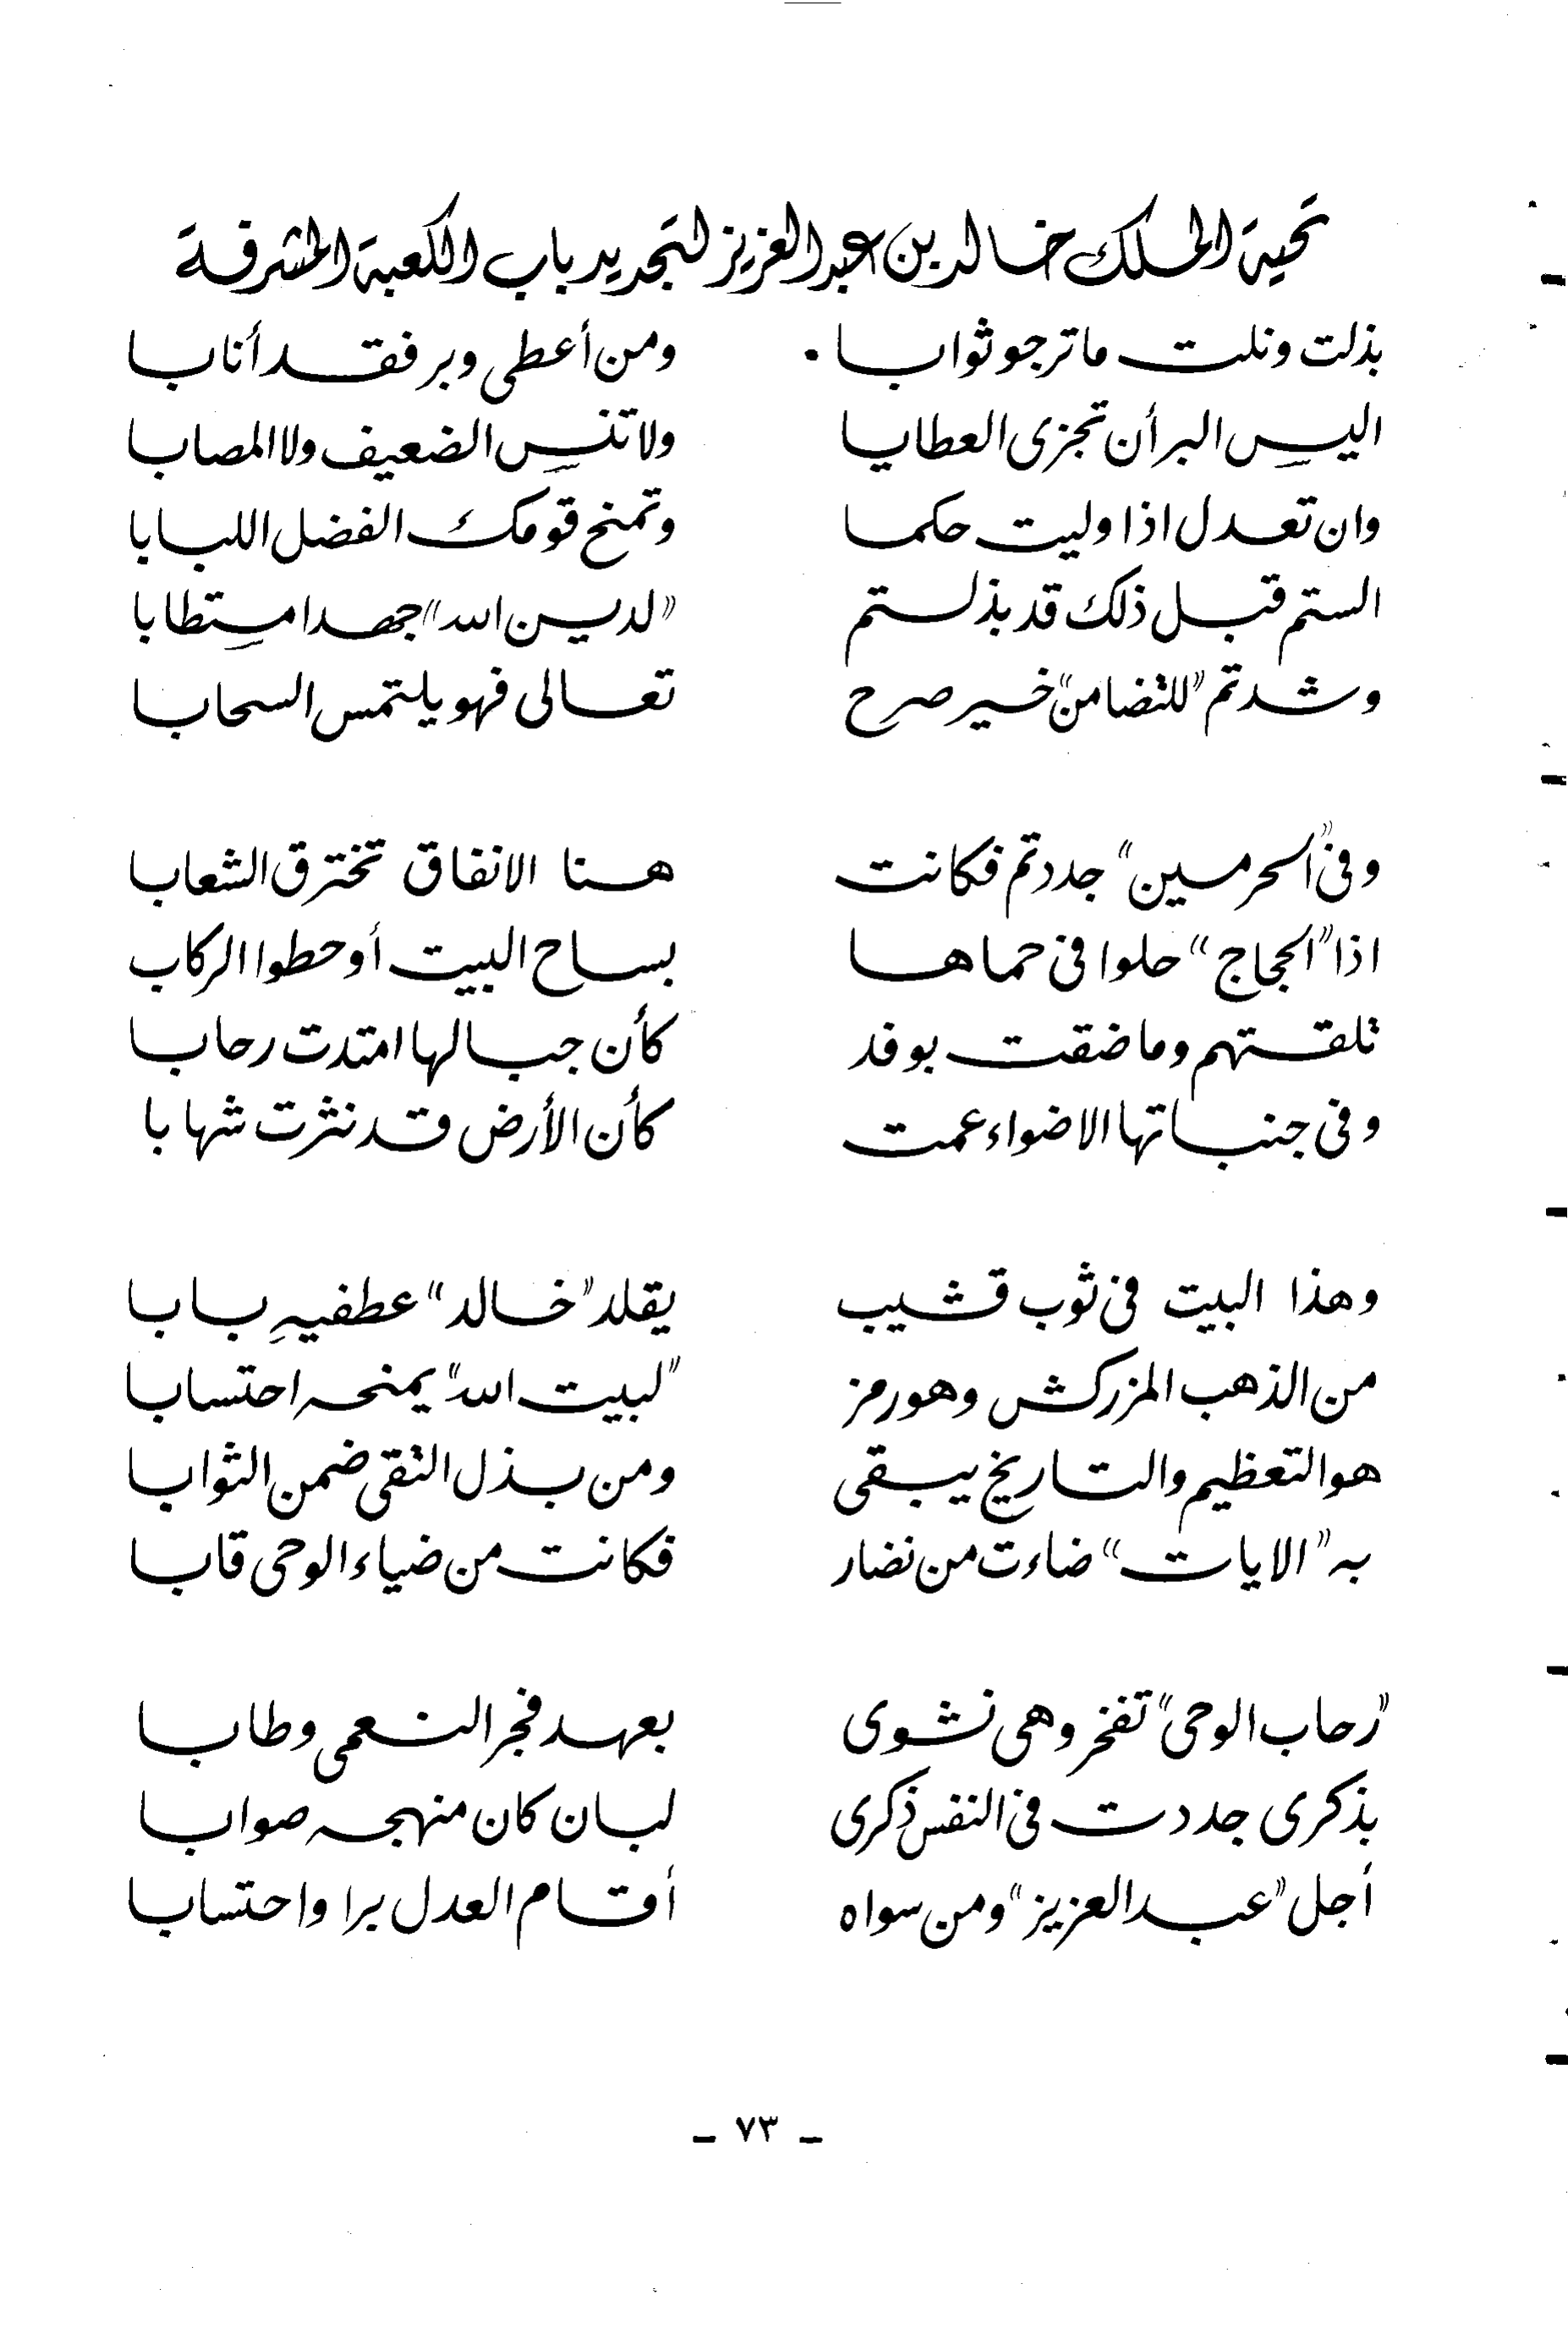 تحية الملك خالد بن عبد العزيز لتجديد باب الكعبة المشرفة
بذلت ونلت ما ترجو ثوابا . ومن أعطى وبر فقد أنابا
اليس البر أن تجزى العطايا ولا تنس الضعيف ولا المصابا
وان تعدل اذا وليت حكما وتمنح قومك الفضل اللبابا
الستم قبل ذلك قد بذلتم "لدين الله" جهدا مستطابا
وشدتم "للتضامن" خير صرح تعالى فهو يلتمس السحابا
وفى "الحرمين" جددتم فكانت هنا الانفاق تخترق الشعابا
اذا "الحجاج" حلوا فى حماها بساح البيت أو حطوا الركاب
تلقتهم وما ضقت بوفد كأن جبالها امتدت رحابا
وفى جنباتها الاضواء عمت كأن الأرض قد نثرت شهابا
وهذا البيت فى ثوب قشيب يقلد "خالد" عطفيه بابا
من الذهب المزركش وهو رمز "لبيت الله" يمنحه احتسابا
هو التعظيم والتاريخ يبقى ومن بذل التقى ضمن الثوابا
به "الايات" ضاءت من نضار فكانت من ضياء الوحى قابا
"رحاب الوحى" تفخر وهى نشوى بعهد فجر النعمى وطابا
بذكرى جددت فى النفس ذكرى لبان كان منهجه صوابا
أجل "عبد العزيز" ومن سواه أقام العدل برا واحتسابا
- ٧٣ -